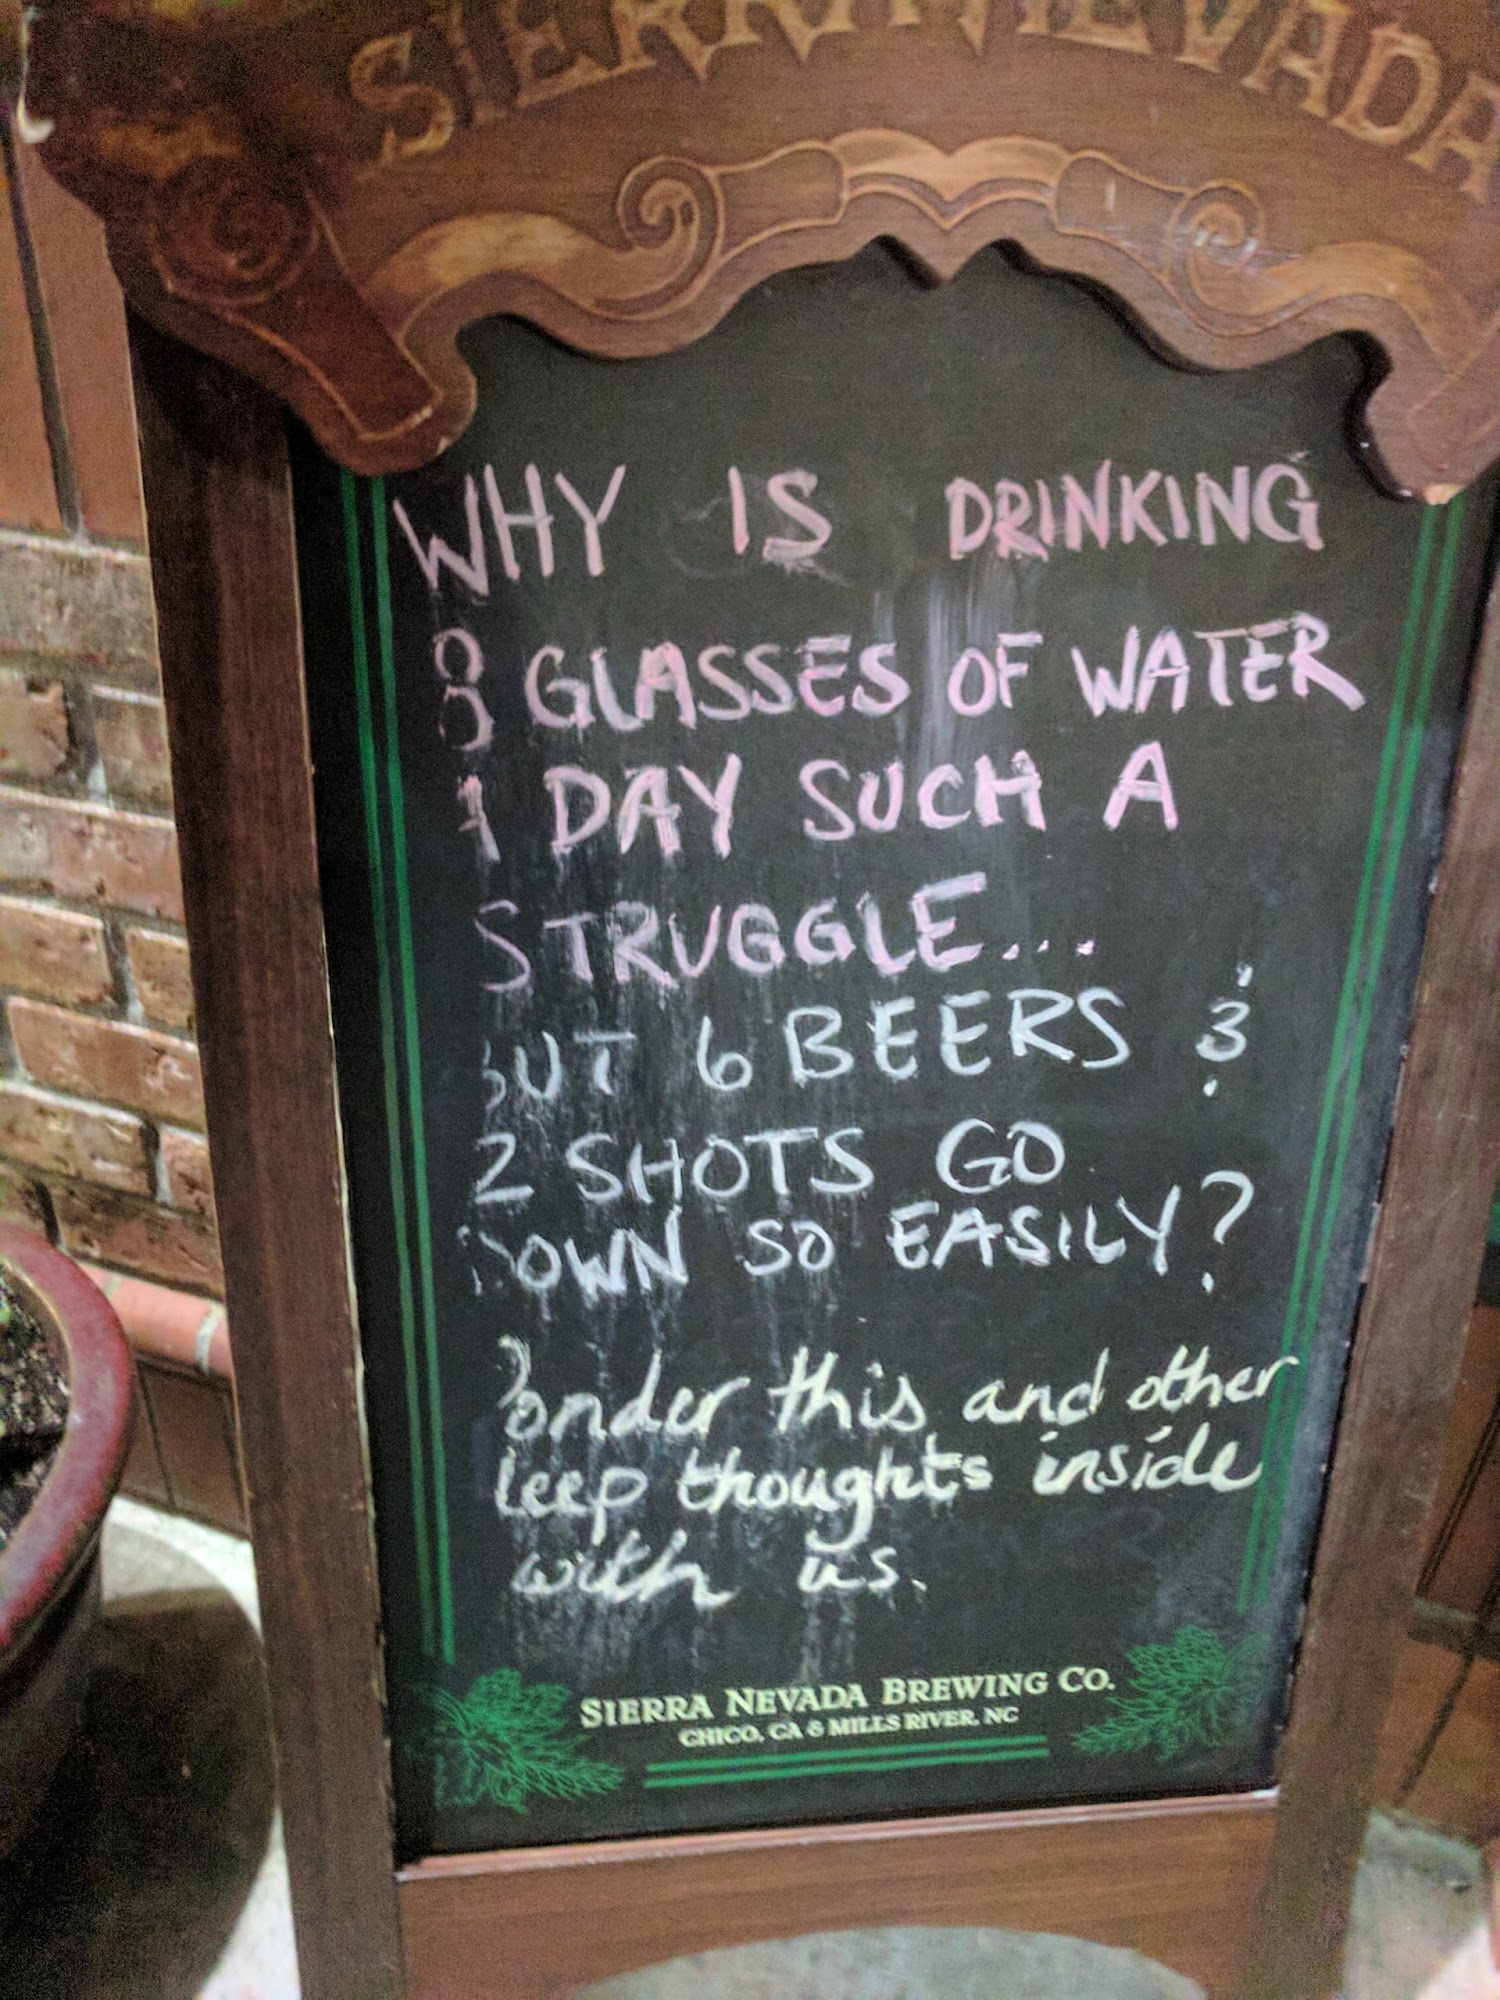 SIERRA NEVADA
WHY IS DRINKING
8 GLASSES OF WATER
A DAY SUCH A
STRUGGLE...
BUT 6 BEERS &
2 SHOTS GO
DOWN SO EASILY?
Ponder this and other
deep thoughts inside
with us.
SIERRA NEVADA BREWING CO.
CHICO, CA & MILLS RIVER, NC